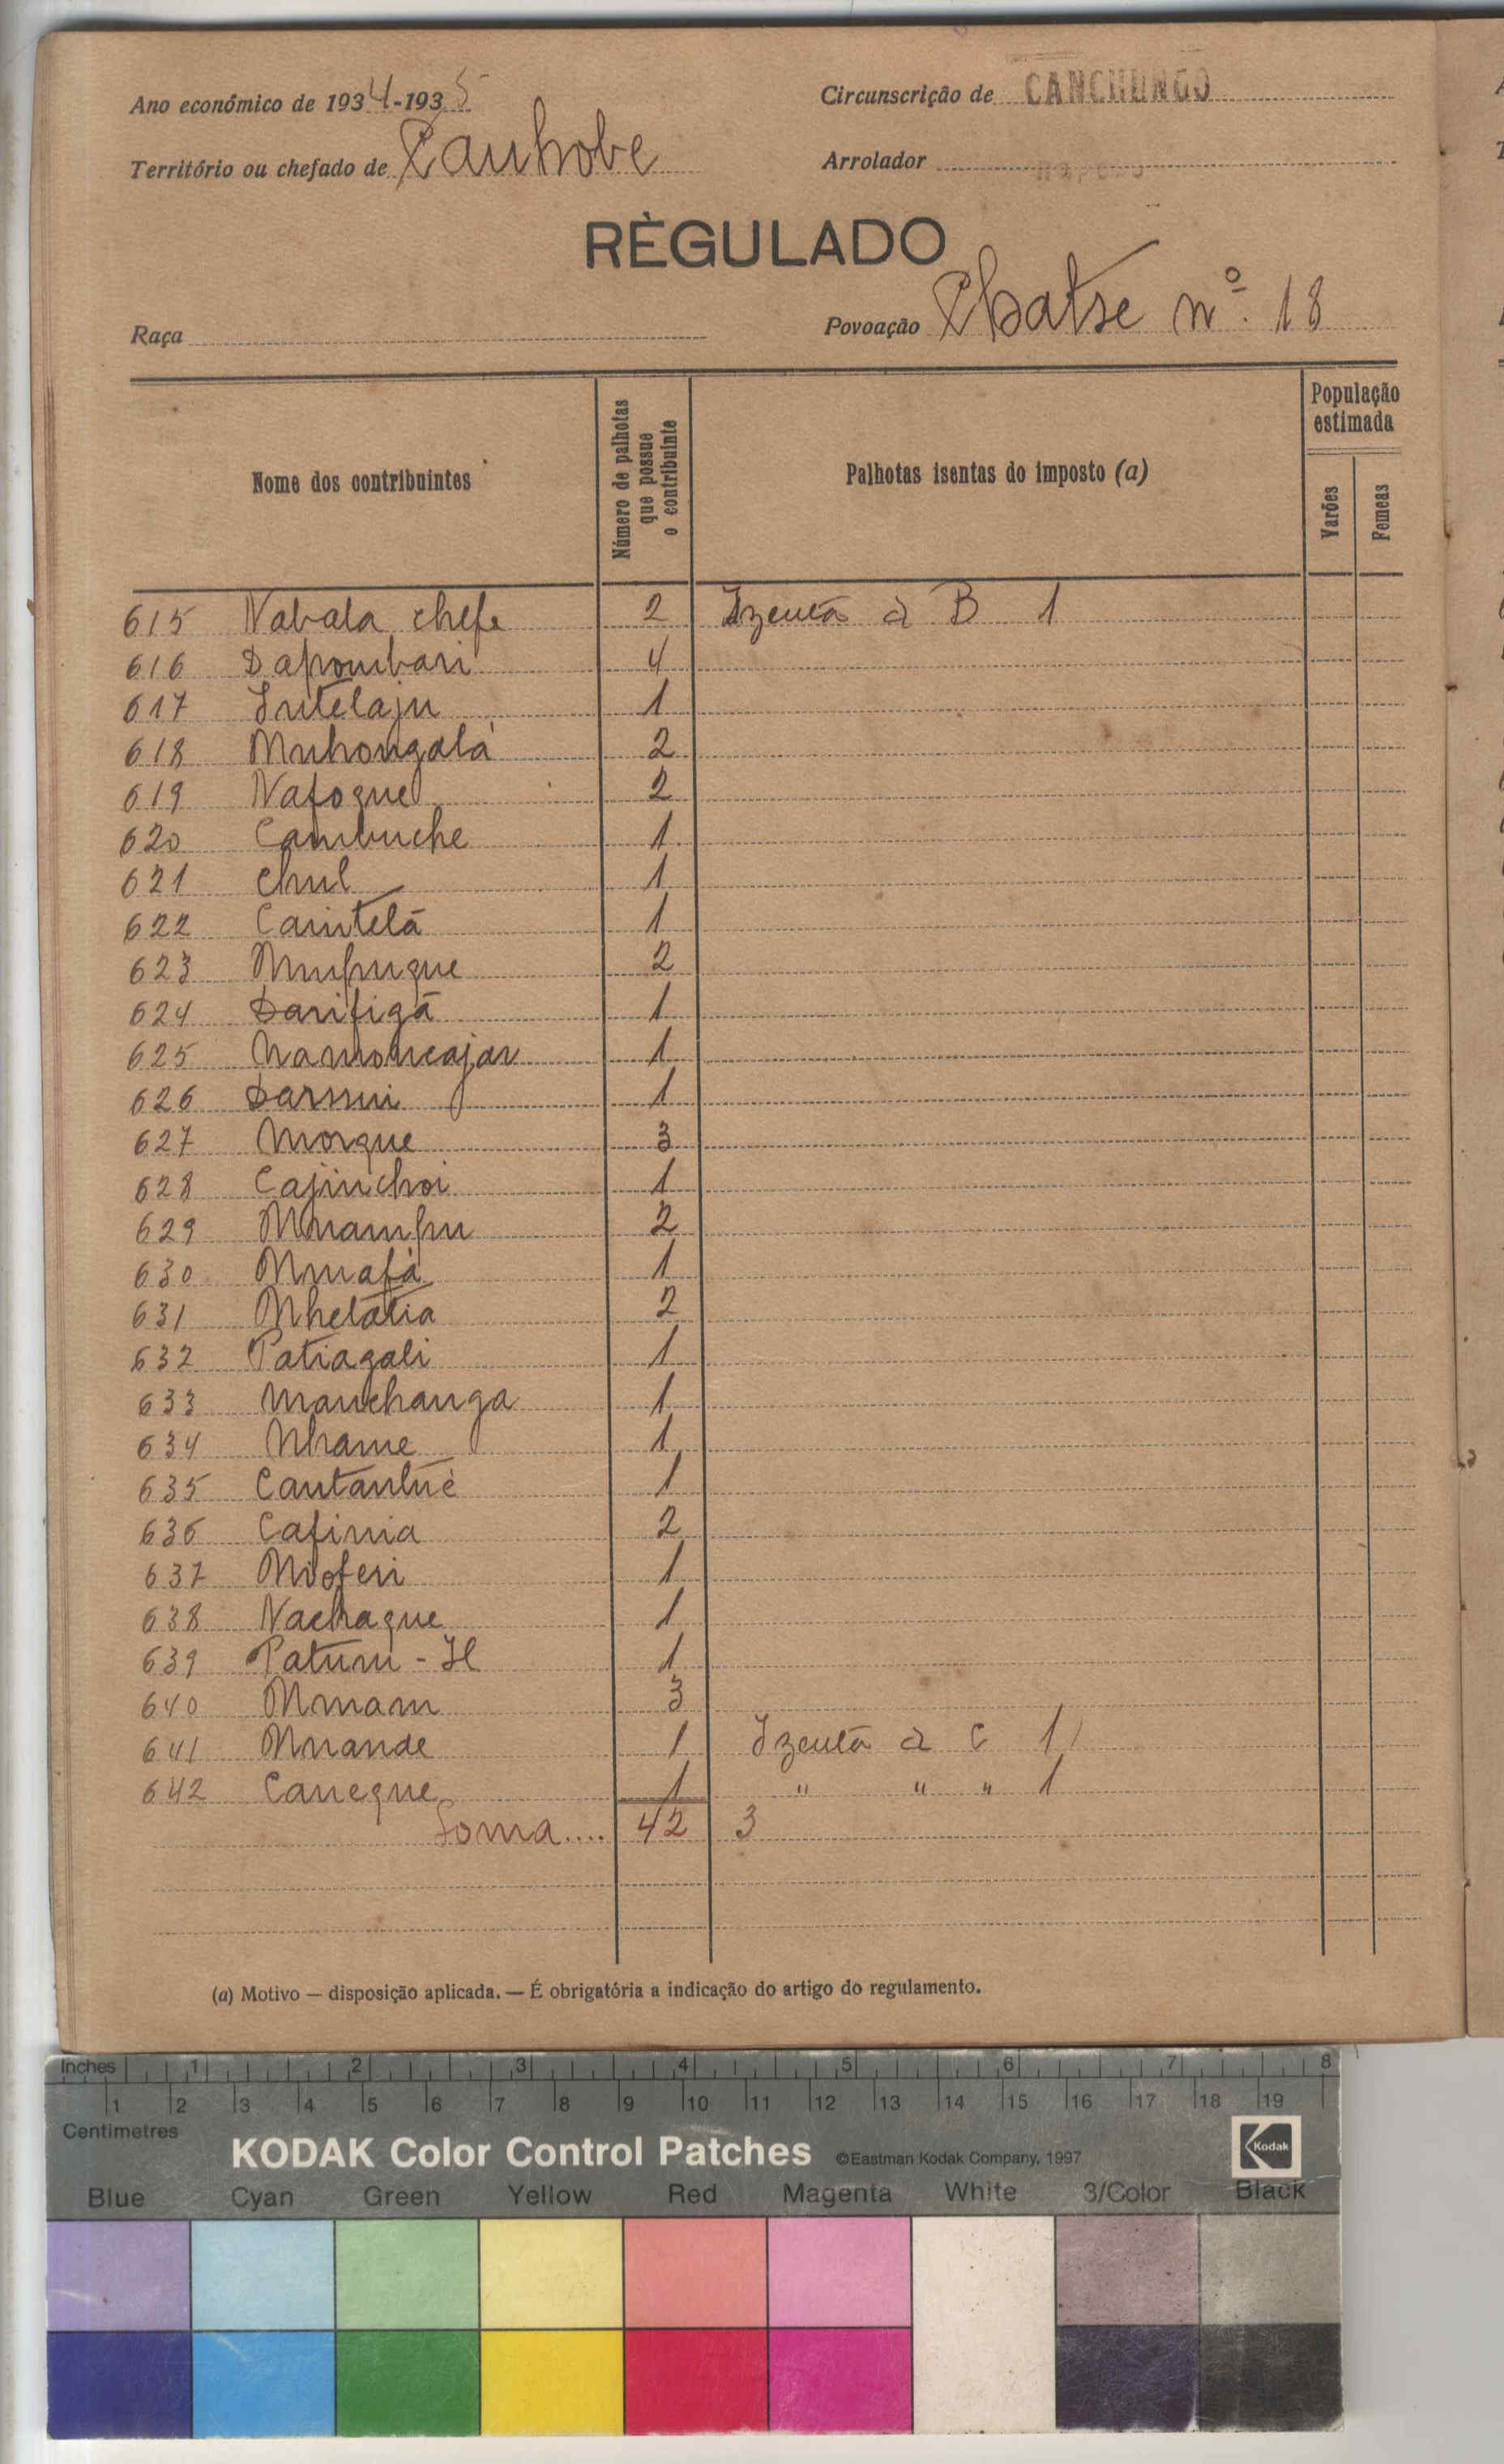 Ano económico de 1934-1935
Circunscrição de CANCHUNGO
Território ou chefado de Canhobe
Arrolador
RÈGULADO
Raça
Povoação Chatse nº. 18
Nome dos contribuintes
Número de palhotas que possue o contribuinte
Palhotas isentas do imposto (a)
População estimada
Varões
Femeas
615 Nabala chefe 2 Izenta à B 1
616 Dapombari 4
617 Intelaju 1
618 Muhongalá 2
619 Nafoque 2
620 Cambuche 1
621 Chul 1
622 Caintelã 1
623 Mupuque 2
624 Darifigã 1
625 Namoncajan 1
626 Darsui 1
627 Morque 3
628 Cajinchoi 1
629 Muampu 2
630 Muafà 1
631 Nhelatia 2
632 Patiagali 1
633 Manchanga 1
634 Nhame 1
635 1
636 Cafinia 2
637 Mioferi 1
638 Nachaque 1
639 Patum - II 1
640 Mmam 3
641 Muande 1 Izenta à C 1
642 Caneque 1 " " " 1
Soma.... 42 3
(a) Motivo — disposição aplicada. — É obrigatória a indicação do artigo do regulamento.
Inches 1 2 3 4 5 6 7 8
1 2 3 4 5 6 7 8 9 10 11 12 13 14 15 16 17 18 19
Centimetres
KODAK Color Control Patches ©Eastman Kodak Company, 1997 Kodak
Blue Cyan Green Yellow Red Magenta White 3/Color Black